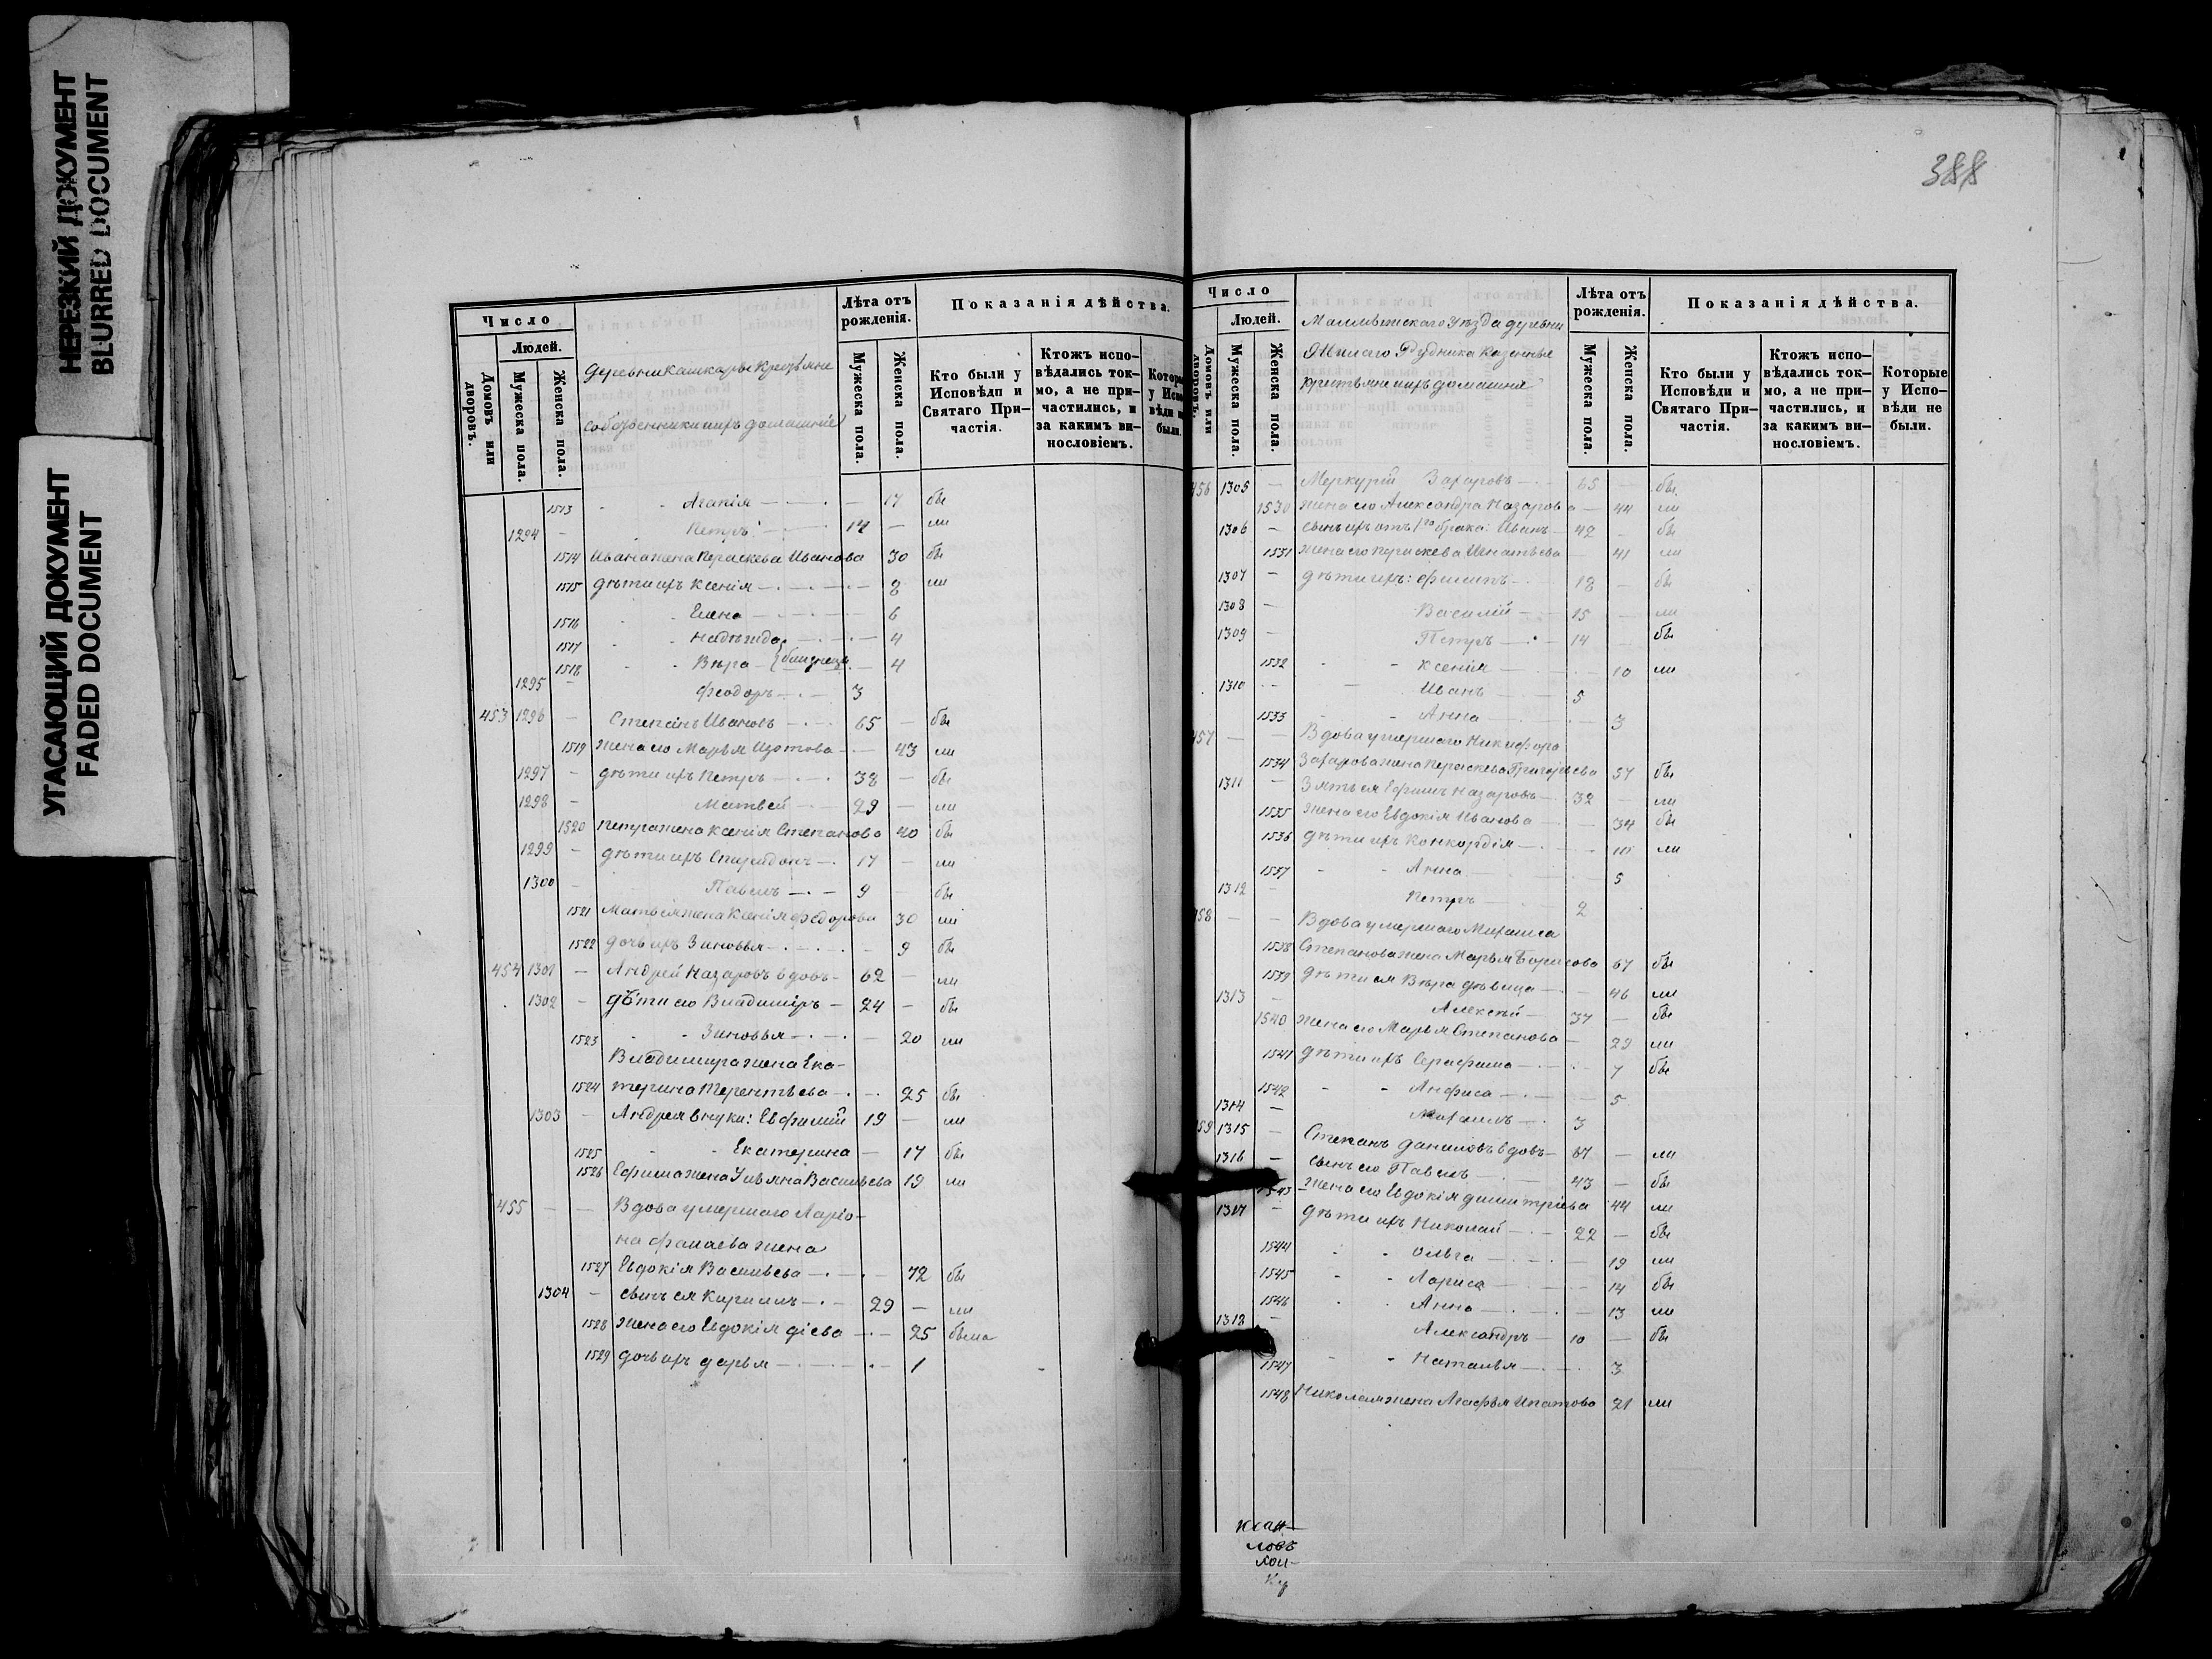 НЕРЕЗКИЙ ДОКУМЕНТ
BLURRED DOCUMENT
УГАСАЮЩИЙ ДОКУМЕНТ
FADED DOCUMENT
Число
Домовъ или дворовъ.
Людей.
Мужеска пола.
Женска пола.
деревни
собственники ихъ домашніе
Лѣта отъ рожденія.
Мужеска пола.
Женска пола.
Показанія дѣйства.
Кто были у Исповѣди и Святаго Причастія.
Ктожъ исповѣдались токмо, а не причастились, и за какимъ винословіемъ.
1513 - - Агапія — — 17 бы
1294 — Петръ — 14 — ли
1514 Ивана жена Параскева Иванова 30 бы
1515 дѣти ихъ Ксенія — 8 ли
1516 - - Елена — 6
1517 - - Надежда — 4
1518 - - Вѣра — близнецы — 4
1295 — Феодоръ — 3
453 1296 — Степанъ Ивановъ — 65 — бы
1519 жена его Марья Изотова — 43 ли
1297 — дѣти ихъ Петръ — 38 — бы
1298 — Матвей — 29 — ли
1520 Петра жена Ксенія Степанова 40 бы
1299 — дѣти ихъ Спиридонъ — 17 — ли
1300 — Павелъ — 9 — бы
1521 Матвея жена Ксенія Федорова 30 ли
1522 дочь ихъ Зиновья — 9 бы
454 1301 — Андрей Назаровъ вдовъ — 62 — ли
1302 — дѣти его Владимиръ — 24 — бы
1523 - - Зиновья — 20 ли
Владимира жена Ека-
1524 терина Терентьева — 25 бы
1303 — Андрея внуки: Евфимій 19 — ли
1525 - Екатерина — 17 бы
1526 Ефима жена Ульяна Васильева 19 ли
455 — — Вдова умершаго Ларіо-
на Фалаева жена
1527 Евдокія Васильева — 72 бы
1304 — сынъ ея Кириллъ — 29 — ли
1528 жена его Евдокія — 25 была
1529 дочь ихъ Дарья — 1
388
Число
Людей.
Мужеска пола.
Женска пола.
уѣзда деревни
Рудника казенные
крестьяне ихъ домашніе
Лѣта отъ рожденія.
Мужеска пола.
Женска пола.
Показанія дѣйства.
Кто были у Исповѣди и Святаго Причастія.
Ктожъ исповѣдались токмо, а не причастились, и за какимъ винословіемъ.
Которые у Исповѣди не были.
456 1305 — Меркурій Захаровъ — 65 — бы
1530 жена его Александра Назарова — 44 ли
1306 — сынъ ихъ отъ 1го брака: Иванъ — 42 - бы
1531 жена его Параскева Игнатьева — 41 ли
1307 — дѣти ихъ: Филипъ — 18 — бы
1308 — Василій — 15 — ли
1309 — Петръ — 14 — бы
1532 - - Ксенія — 10 ли
1310 — Иванъ — 5
1533 - - Анна — 3
457 — — Вдова умершаго Никифора
1534 Захарова жена Параскева Григорьева 57 бы
1311 — Зять ея Ефимъ Назаровъ — 32 — ли
1535 жена его Евдокія Иванова — 34 бы
1536 дѣти ихъ Конкордія — 10 ли
1537 - - Анна — 5
1312 — Петръ — 2
458 — — Вдова умершаго Михаила
1538 Степанова жена Марья Борисова 67 бы
1539 дѣти ея Вѣра дѣвица — 46 ли
1313 — Алексей — 37 — бы
1540 жена его Марья Степанова — 29 ли
1541 дѣти ихъ Серафима — 7 бы
1542 - - Анфиса — 5
1314 — Михаилъ — 3
459 1315 — Степанъ Даниловъ вдовъ — 67 — ли
1316 — сынъ его Павелъ — 43 — бы
1543 жена его Евдокія Димитріева 44 ли
1317 — дѣти ихъ Николай — 22 — бы
1544 - - Ольга — 19 ли
1545 - - Лариса — 14 бы
1546 - - Анна — 13 ли
1318 — Александръ — 10 — бы
1547 - - Наталья — 3
1548 Николая жена Агафья Ипатова 21 ли